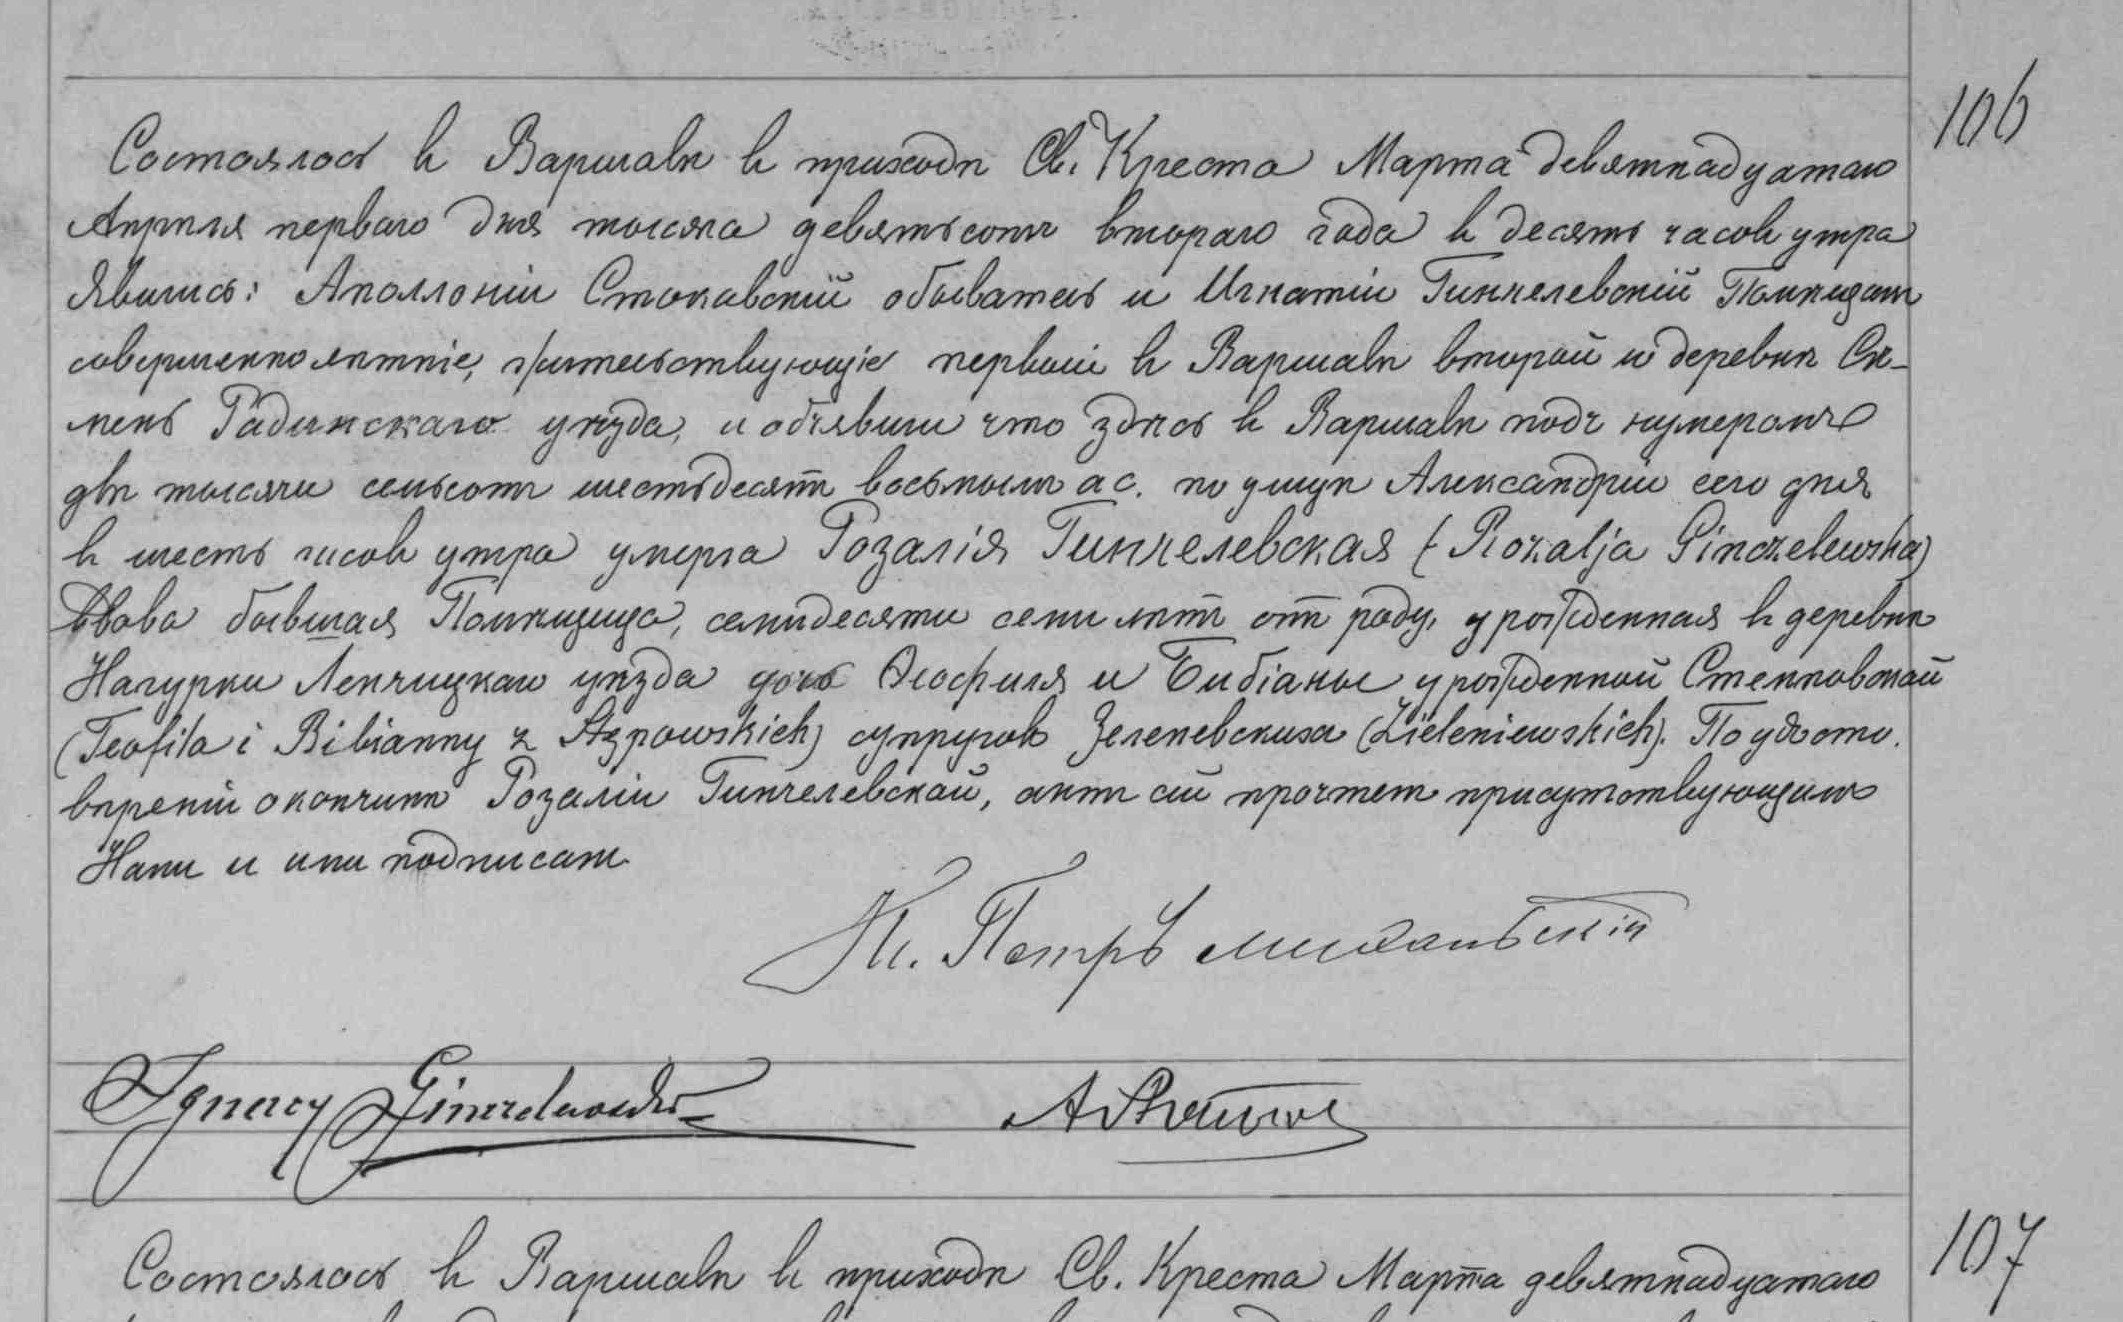 106
Состоялось въ Варшавѣ въ приходѣ Св. Креста Марта девятнадцатаго
Апрѣля перваго дня тысяча девятьсотъ втораго года въ десять часовъ утра
Явились: Аполлоній Стокавскій обыватель и Игнатій Гинчелевскій Помѣщикъ
совершеннолѣтніе, жительствующіе первый въ Варшавѣ второй въ деревнѣ Се-
мень Радинскаго уѣзда, и объявили что здѣсь въ Варшавѣ подъ нумеромъ
двѣ тысячи семьсотъ шестьдесятъ восьмымъ ас. по улицѣ Александріи сего дня
въ шесть часовъ утра умерла Розалія Гинчелевская (Rozalja Ginczelewska)
Вдова бывшая Помѣщица, семидесяти семи лѣтъ отъ роду, урожденная въ деревнѣ
Нагурки Ленчицкаго уѣзда дочь Ѳеофиля и Бибіаны урожденной
(Teofila i Bibianny z супруговъ Зеленевскихъ (Zieleniewskich). По удосто-
вѣреніи о кончинѣ Розаліи Гинчелевской, актъ сей прочтенъ присутствующимъ
Нами и ими подписанъ
Кс. Петръ
Ignacy Ginczelewski
107
Состоялось въ Варшавѣ въ приходѣ Св. Креста Марта девятнадцатаго